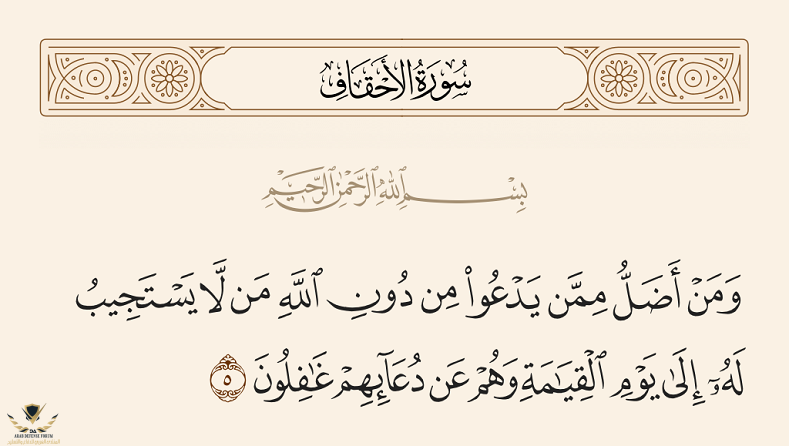 سُورَةُ الأَحْقَافِ
بِسْمِ ٱللَّهِ ٱلرَّحْمَٰنِ ٱلرَّحِيمِ
وَمَنْ أَضَلُّ مِمَّن يَدْعُوا۟ مِن دُونِ ٱللَّهِ مَن لَّا يَسْتَجِيبُ
لَهُۥٓ إِلَىٰ يَوْمِ ٱلْقِيَـٰمَةِ وَهُمْ عَن دُعَآئِهِمْ غَـٰفِلُونَ ٥
ARAB DEFENSE FORUM